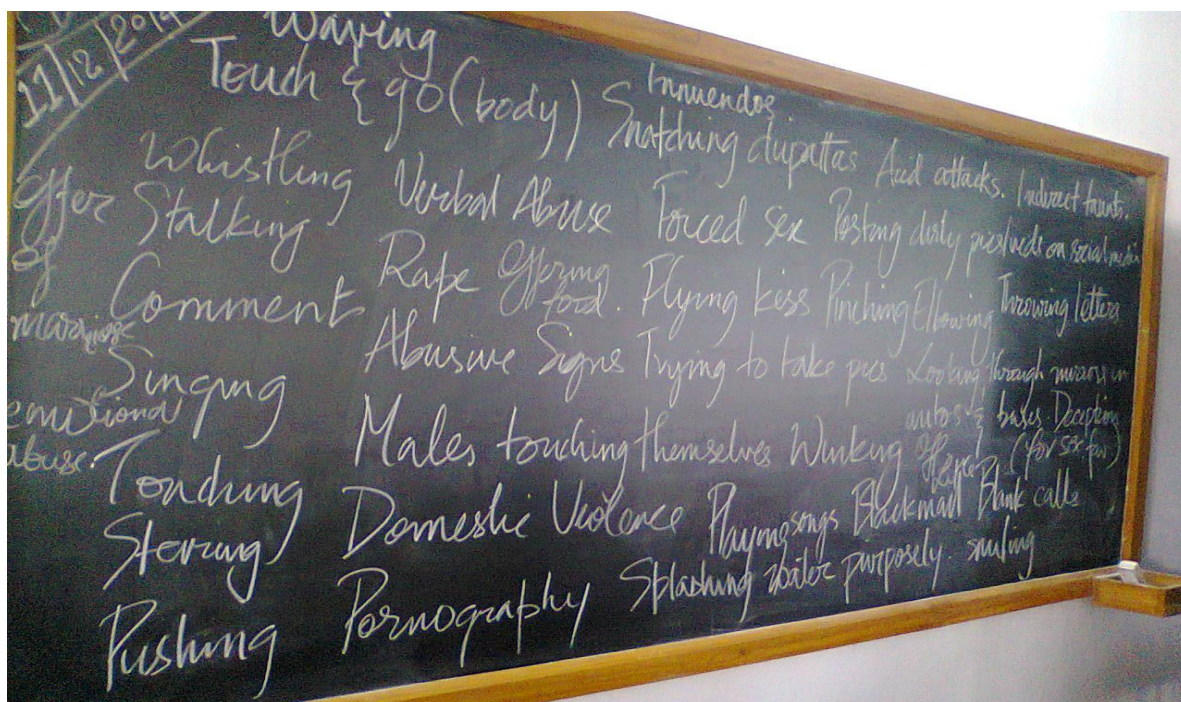 11/12/2014
Waving
Touch & go (body)
Innuendos
Snatching dupattas Acid attacks. Indirect taunts.
Whistling Verbal Abuse Forced sex Posting dirty pics/vids on social media
Offer of marriage
Stalking Rape Offering food. Flying kiss Pinching Elbowing Throwing letters
Comment Abusive Signs Trying to take pics Looking through mirrors in autos & buses. Deceiving
Singing Males touching themselves Winking Offer (for sex)
emotional abuse.
Touching Domestic Violence Playing songs Blackmail Blank calls
Stering Pornography Splashing water purposely. smiling
Pushing